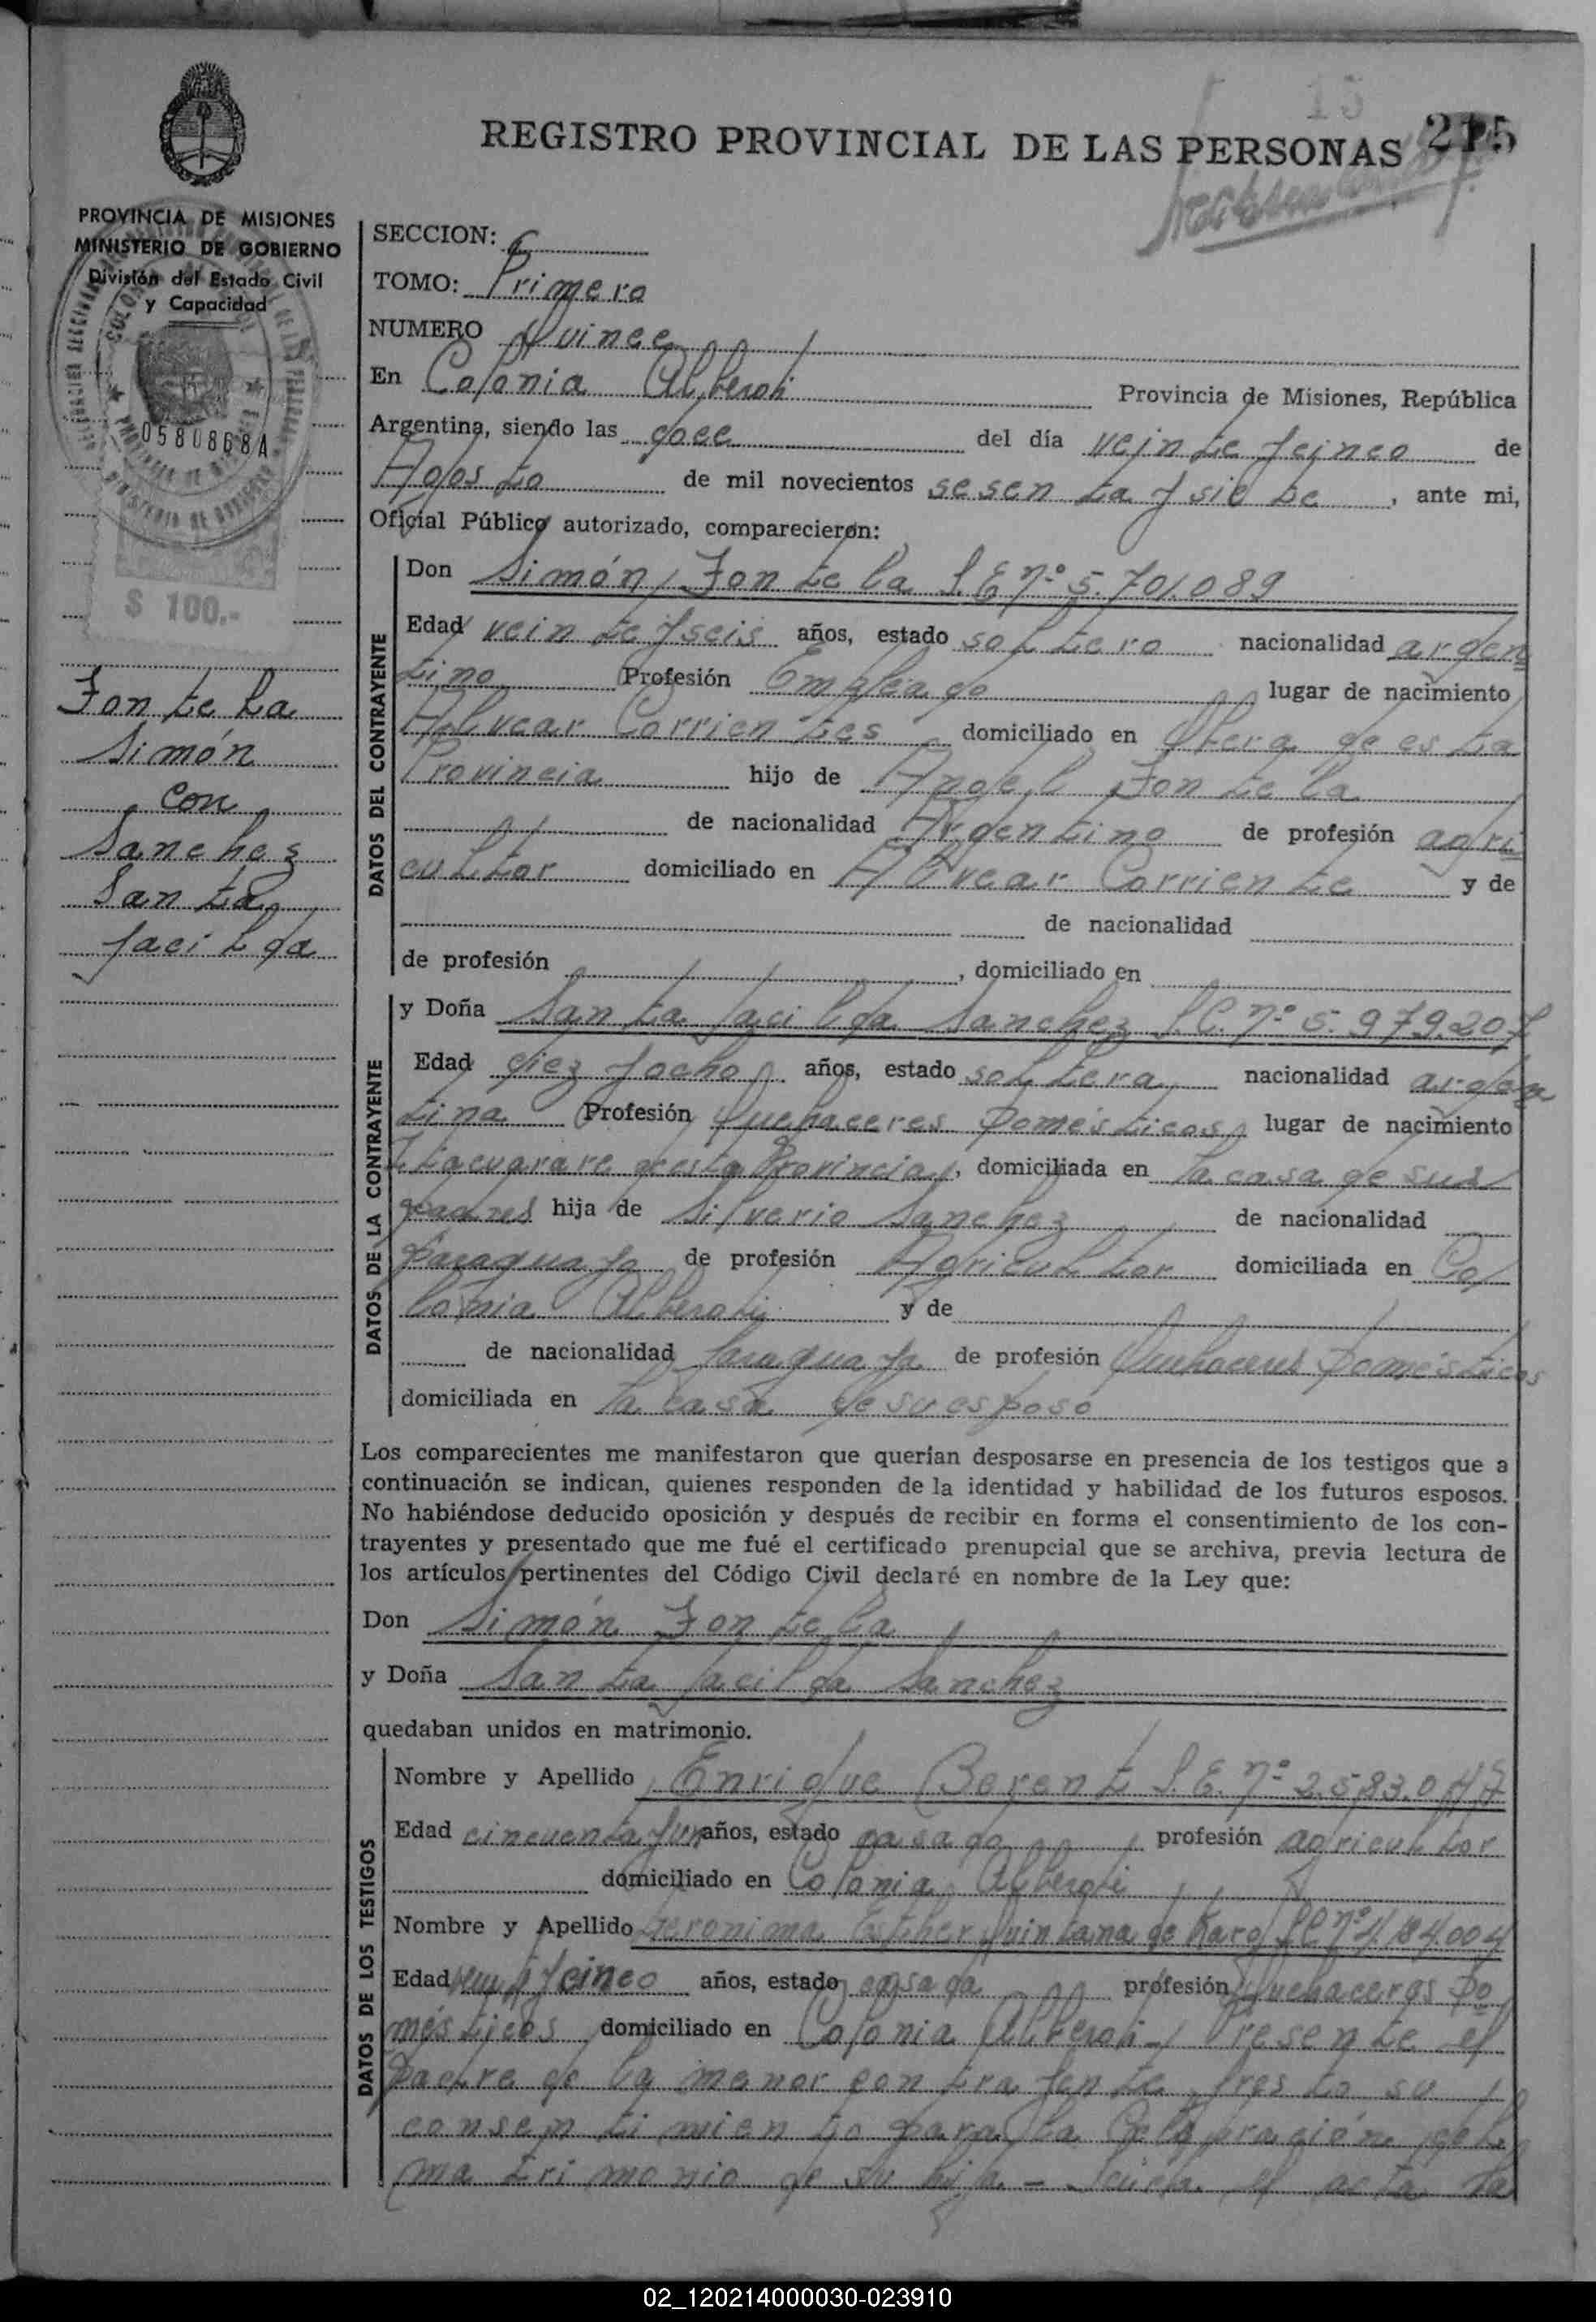 REGISTRO PROVINCIAL DE LAS PERSONAS 215
PROVINCIA DE MISIONES
MINISTERIO DE GOBIERNO
División del Estado Civil
y Capacidad
0580868A
$ 100.-
Fontela
Simón
con
Sanchez
Santa
Jacilda
SECCION:
TOMO: Primero
NUMERO Quince
En Colonia Alberdi Provincia de Misiones, República
Argentina, siendo las doce del día veinte y cinco de
Agosto de mil novecientos sesenta y siete, ante mi,
Oficial Público autorizado, comparecieron:
DATOS DEL CONTRAYENTE
Don Simón Fontela L.E nº 5.701.089
Edad veinte y seis años, estado soltero nacionalidad argen
tino Profesión Empleado lugar de nacimiento
Alvear Corrientes domiciliado en Obera de esta
Provincia hijo de Angel Fontela
de nacionalidad Argentino de profesión agri
cultor domiciliado en Alvear Corriente y de
de nacionalidad
de profesión , domiciliado en
DATOS DE LA CONTRAYENTE
y Doña Santa Jacilda Sanchez L.C. nº 5.979.207
Edad diez y ocho años, estado soltera nacionalidad argen
tina Profesión Quehaceres Domésticos lugar de nacimiento
Itacuarare de esta Provincia, domiciliada en la casa de sus
padres hija de Silverio Sanchez de nacionalidad
paraguayo de profesión Agricultor domiciliada en Co
lonia Alberdi y de
de nacionalidad Paraguaya de profesión Quehaceres Domésticos
domiciliada en la casa de su esposo
Los comparecientes me manifestaron que querían desposarse en presencia de los testigos que a
continuación se indican, quienes responden de la identidad y habilidad de los futuros esposos.
No habiéndose deducido oposición y después de recibir en forma el consentimiento de los con-
trayentes y presentado que me fué el certificado prenupcial que se archiva, previa lectura de
los artículos pertinentes del Código Civil declaré en nombre de la Ley que:
Don Simón Fontela
y Doña Santa Jacilda Sanchez
quedaban unidos en matrimonio.
DATOS DE LOS TESTIGOS
Nombre y Apellido Enrique Berent L.E. nº 2.583.047
Edad cincuenta y un años, estado casado profesión agricultor
domiciliado en Colonia Alberdi
Nombre y Apellido Geronima Esther Quintana de Haro LC nº
Edad y cinco años, estado casada profesión Quehaceres Do
mésticos domiciliado en Colonia Alberdi - Presente el
padre de la menor contrayente presto su
consentimiento para la Celebración del
matrimonio de su hija - el acta la
02_120214000030-023910